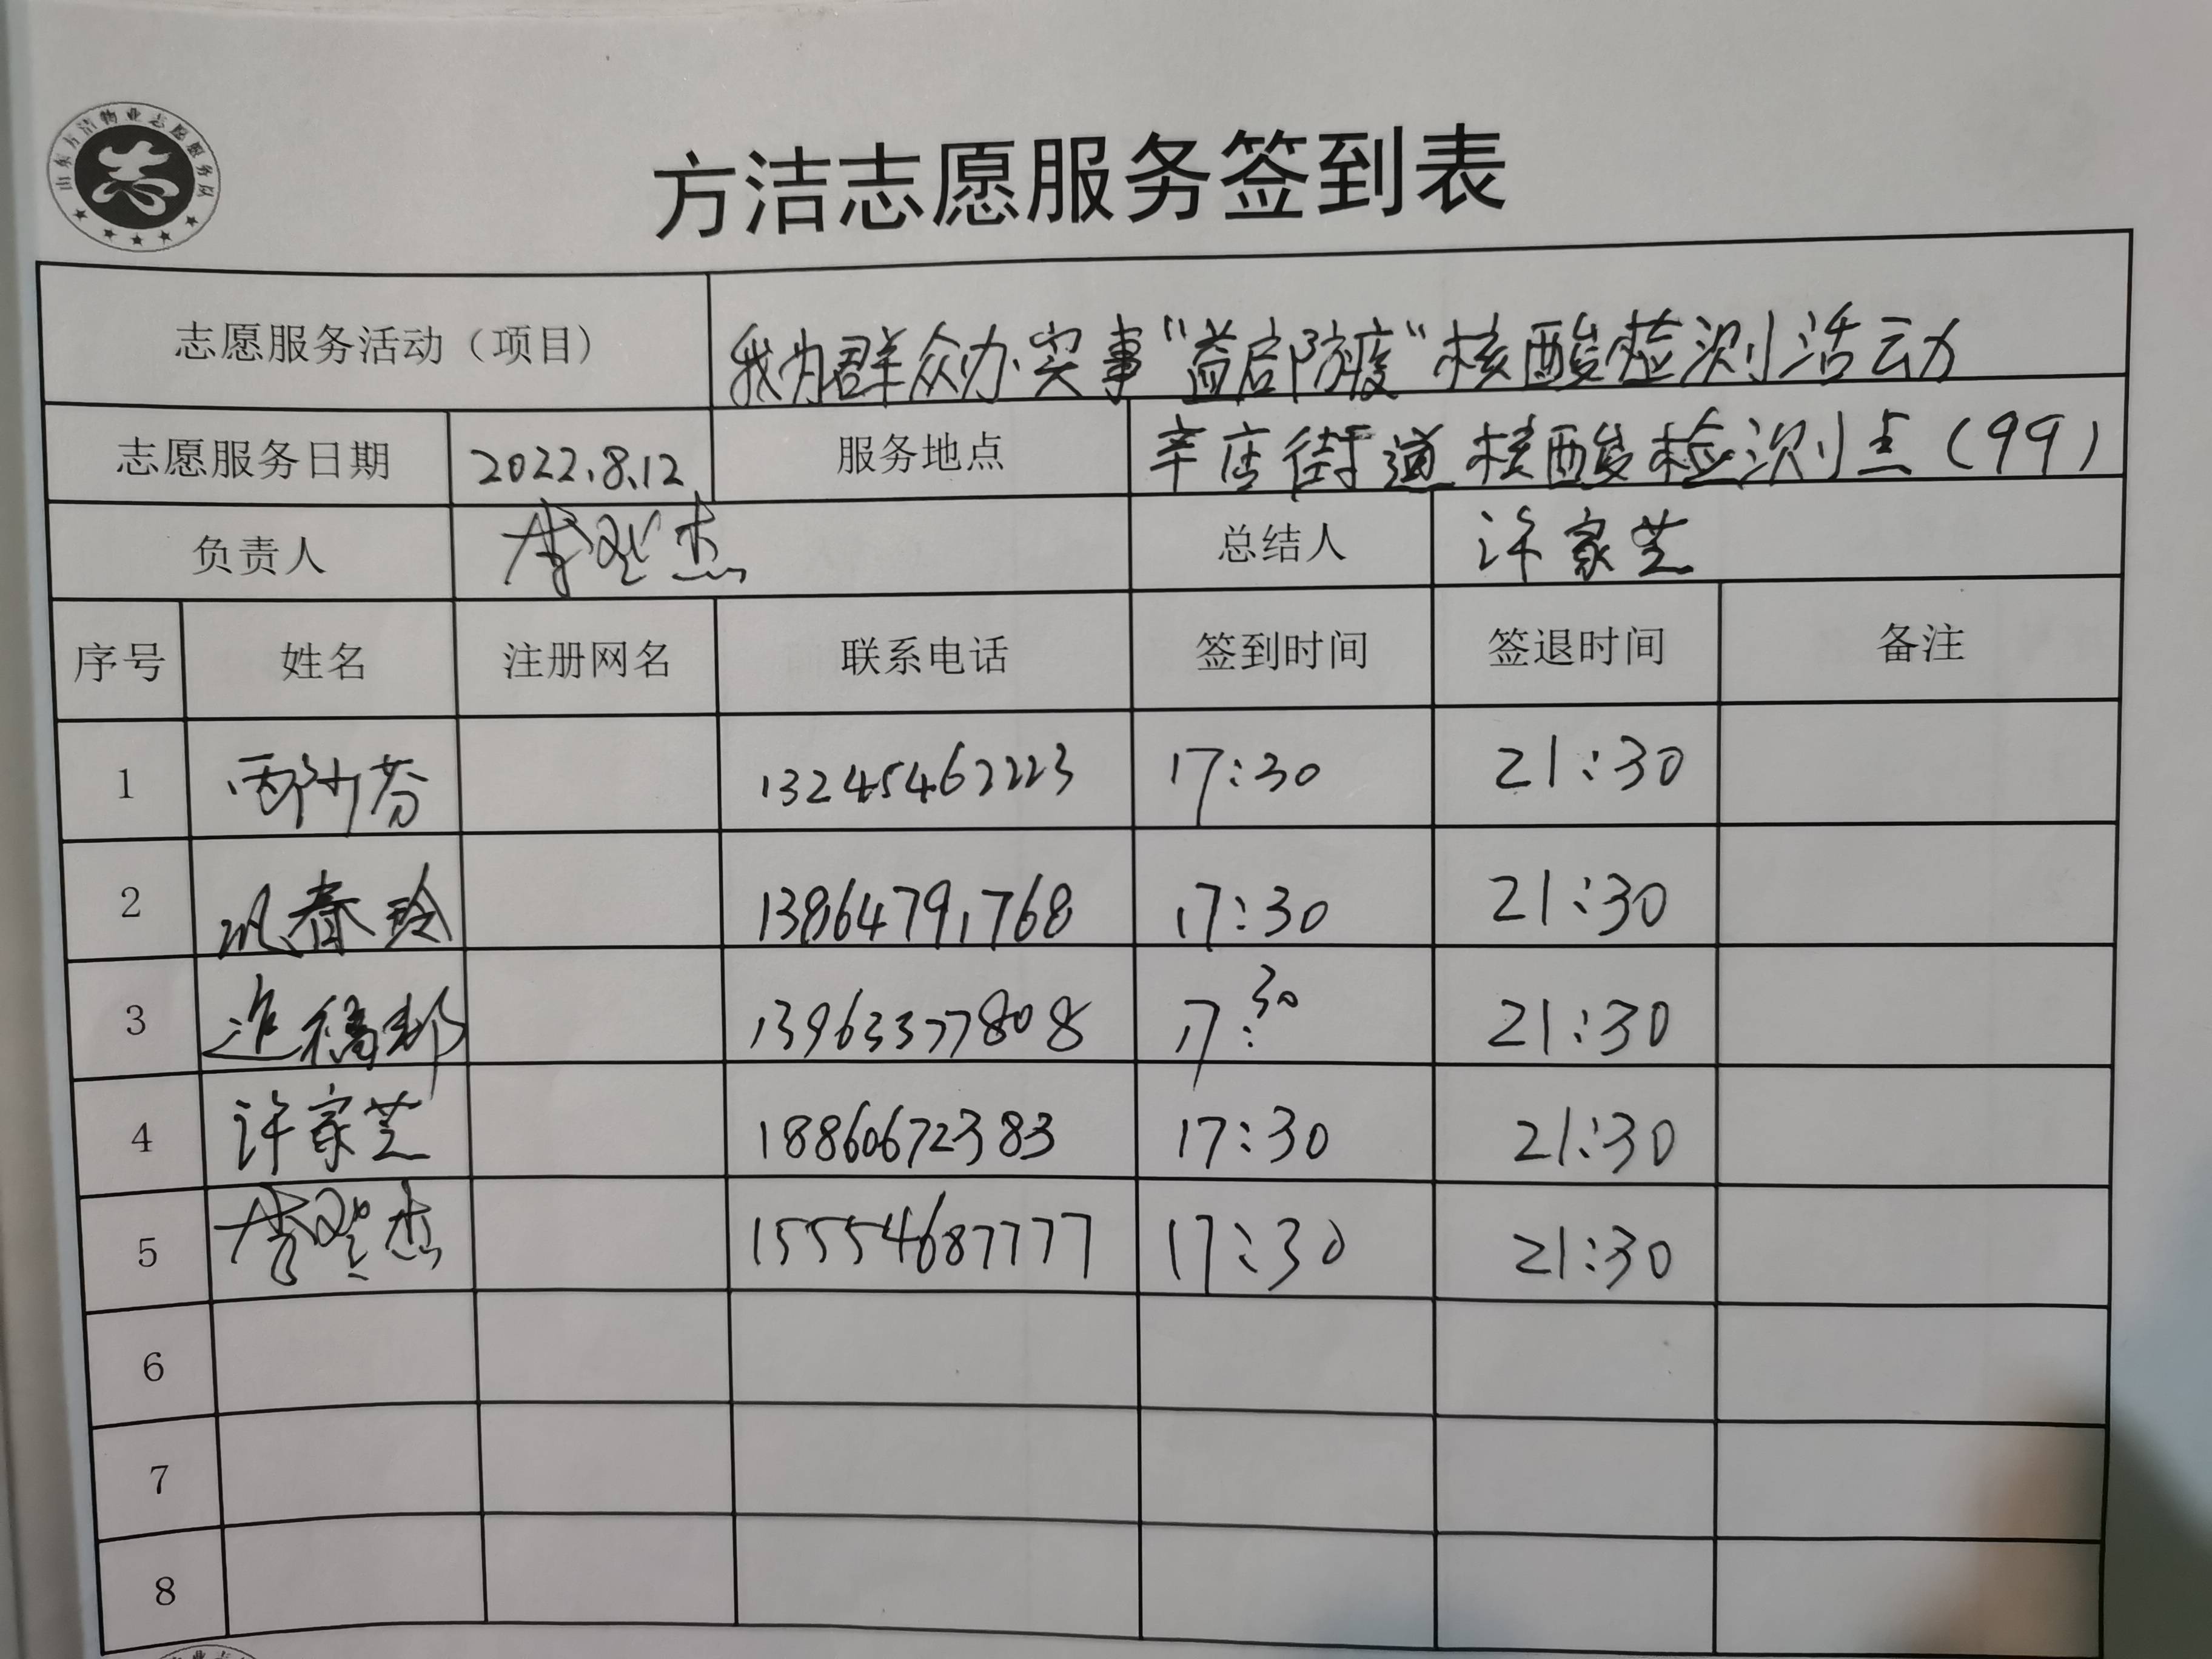 山东方洁物业志愿服务队
方洁志愿服务签到表
志愿服务活动（项目） 我为群众办实事“益启防疫”核酸检测活动
志愿服务日期 2022.8.12 服务地点 辛店街道核酸检测点（99）
负责人 李登杰 总结人 许家芝
序号 姓名 注册网名 联系电话 签到时间 签退时间 备注
1 13245462223 17:30 21:30
2 巩春玲 13864791768 17:30 21:30
3 13963377808 17:30 21:30
4 许家芝 18860672383 17:30 21:30
5 李登杰 15554687777 17:30 21:30
6
7
8